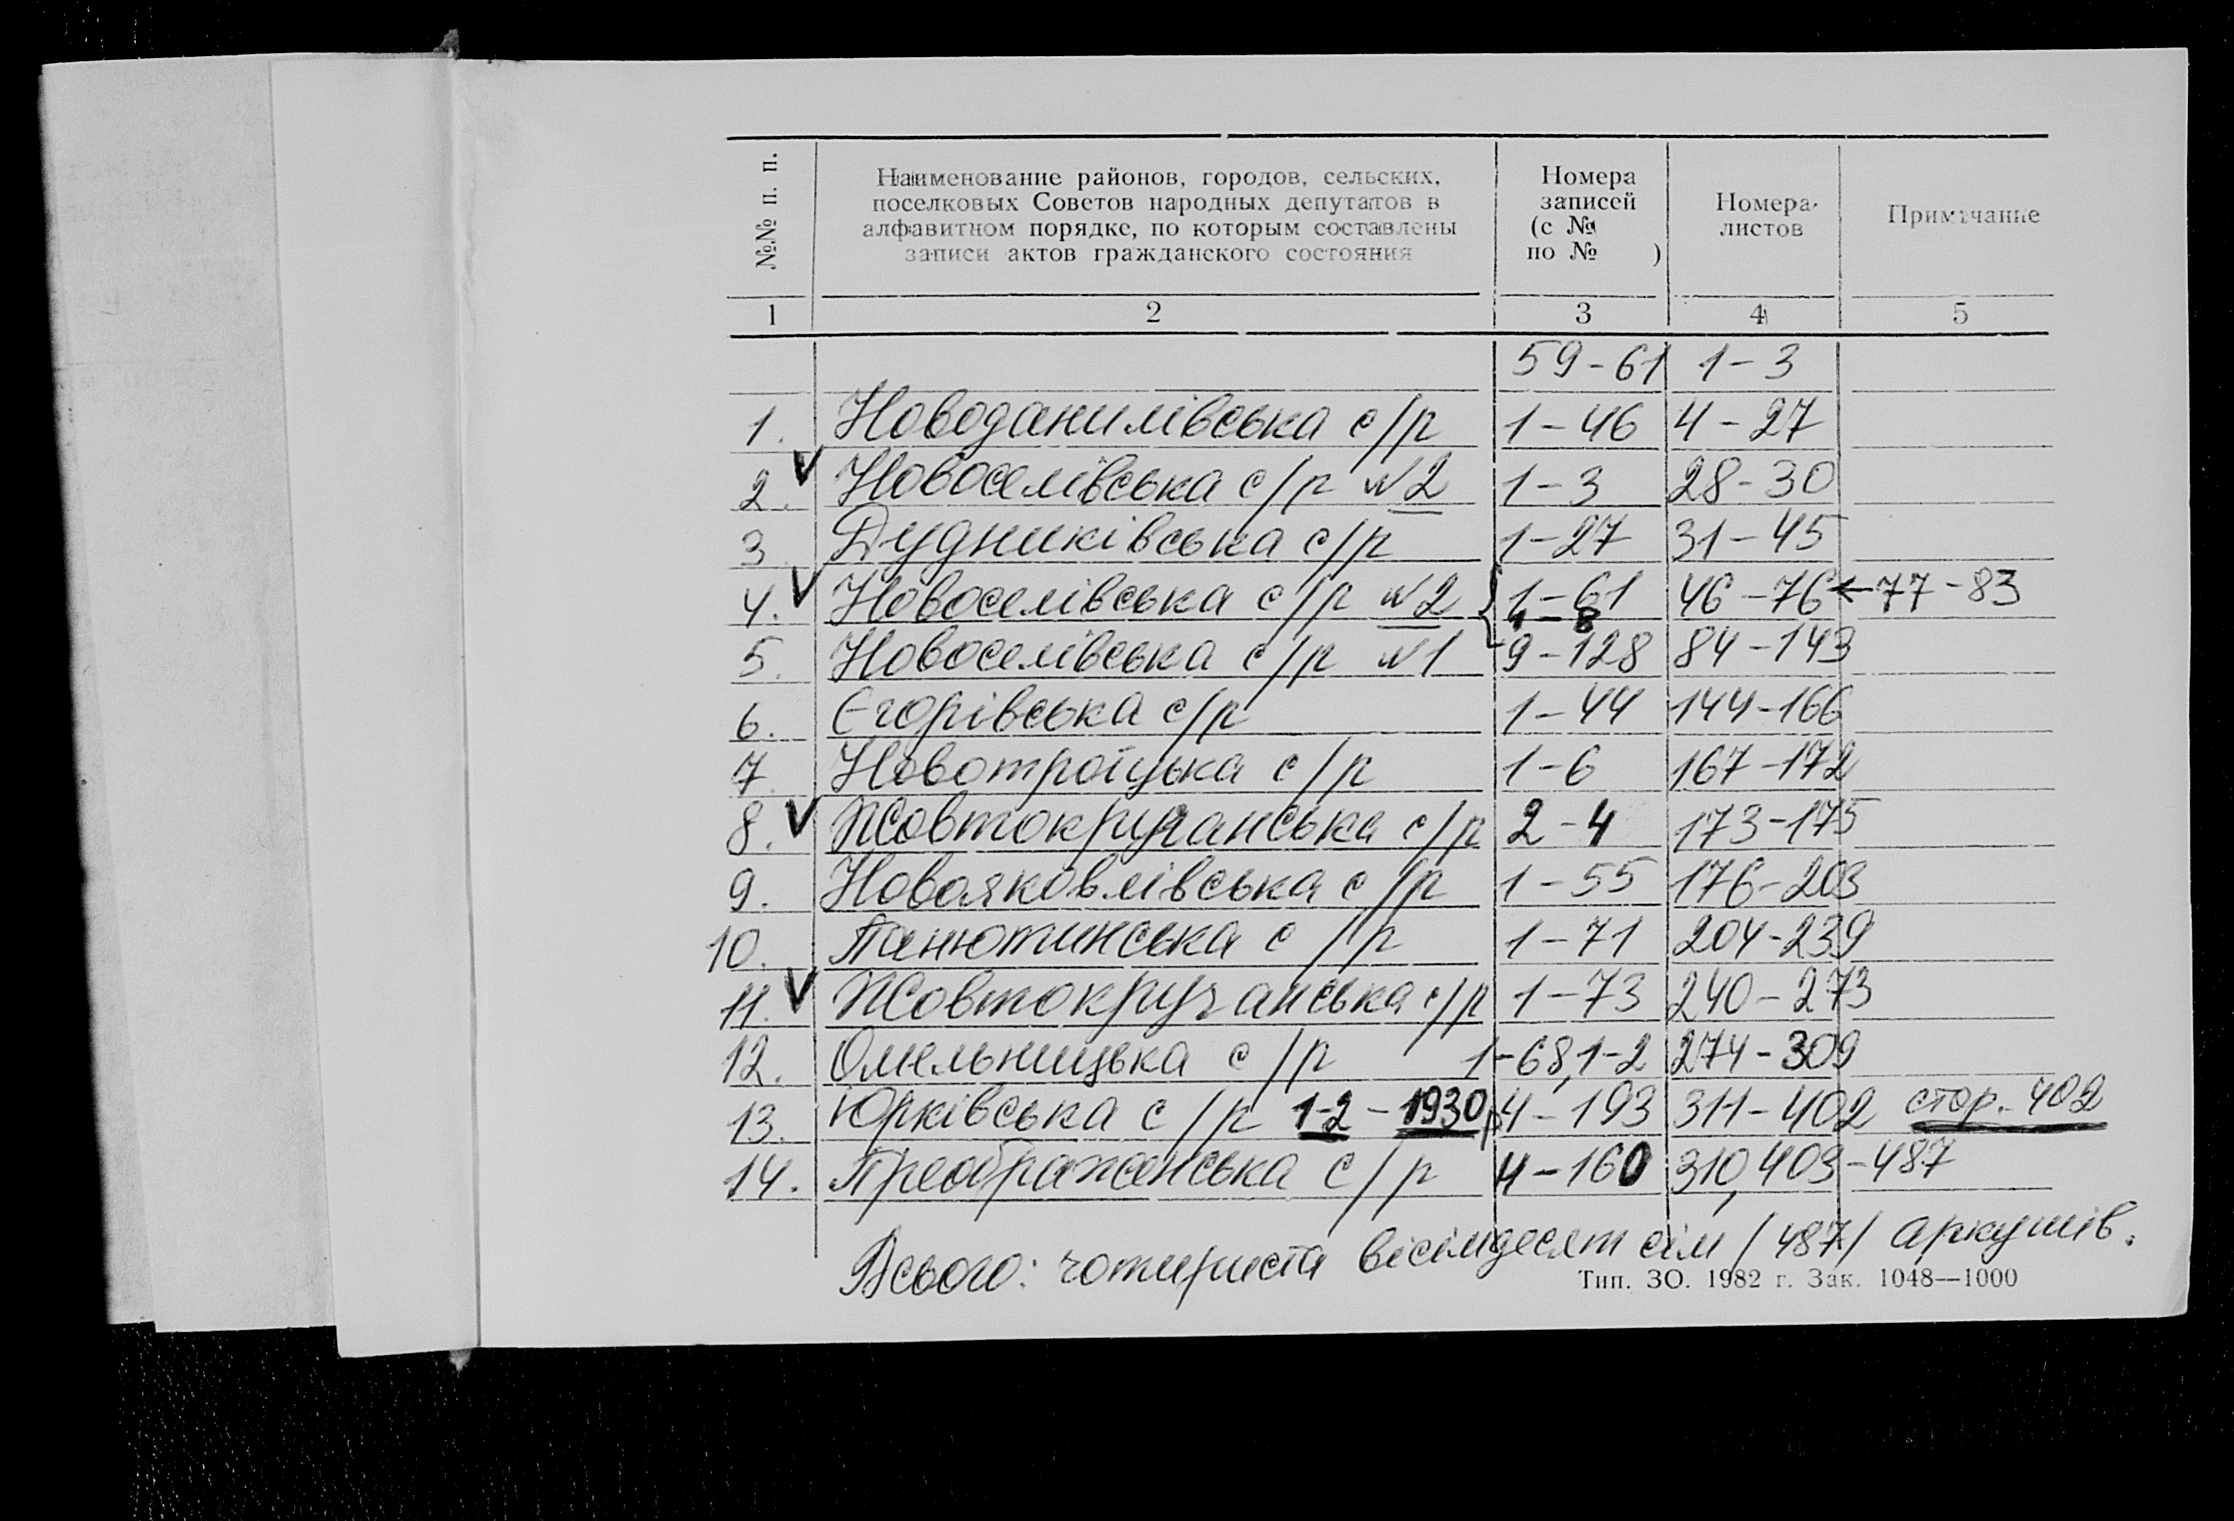 №№ п. п.
Наименование районов, городов, сельских,
поселковых Советов народных депутатов в
алфавитном порядке, по которым составлены
записи актов гражданского состояния
Номера
записей
(с №
по № )
Номера
листов
Примечание
1 2 3 4 5
59-61 1-3
1. Новоданилівська с/р 1-46 4-27
2. V Новоселівська с/р №2 1-3 28-30
3 Дудниківська с/р 1-27 31-45
4. V Новоселівська с/р №2 { 1-61 46-76 ← 77-83
1-8
5. Новоселівська с/р №1 9-128 84-143
6. Єгорівська с/р 1-44 144-166
7. Новотроїцька с/р 1-6 167-172
8. V Жовтокручанська с/р 2-4 173-175
9. Новояковлівська с/р 1-55 176-203
10. Панютинська с/р 1-71 204-239
11. V Жовтокручанська с/р 1-73 240-273
12. Омельницька с/р 1-68,1-2 274-309
13. Юрківська с/р 1-2 - 1930р 4-193 311-402 стор. 402
14. Преображенська с/р 4-160 310,403-487
Всього: чотириста вісімдесят сім /487/ аркушів.
Тип. ЗО. 1982 г. Зак. 1048—1000